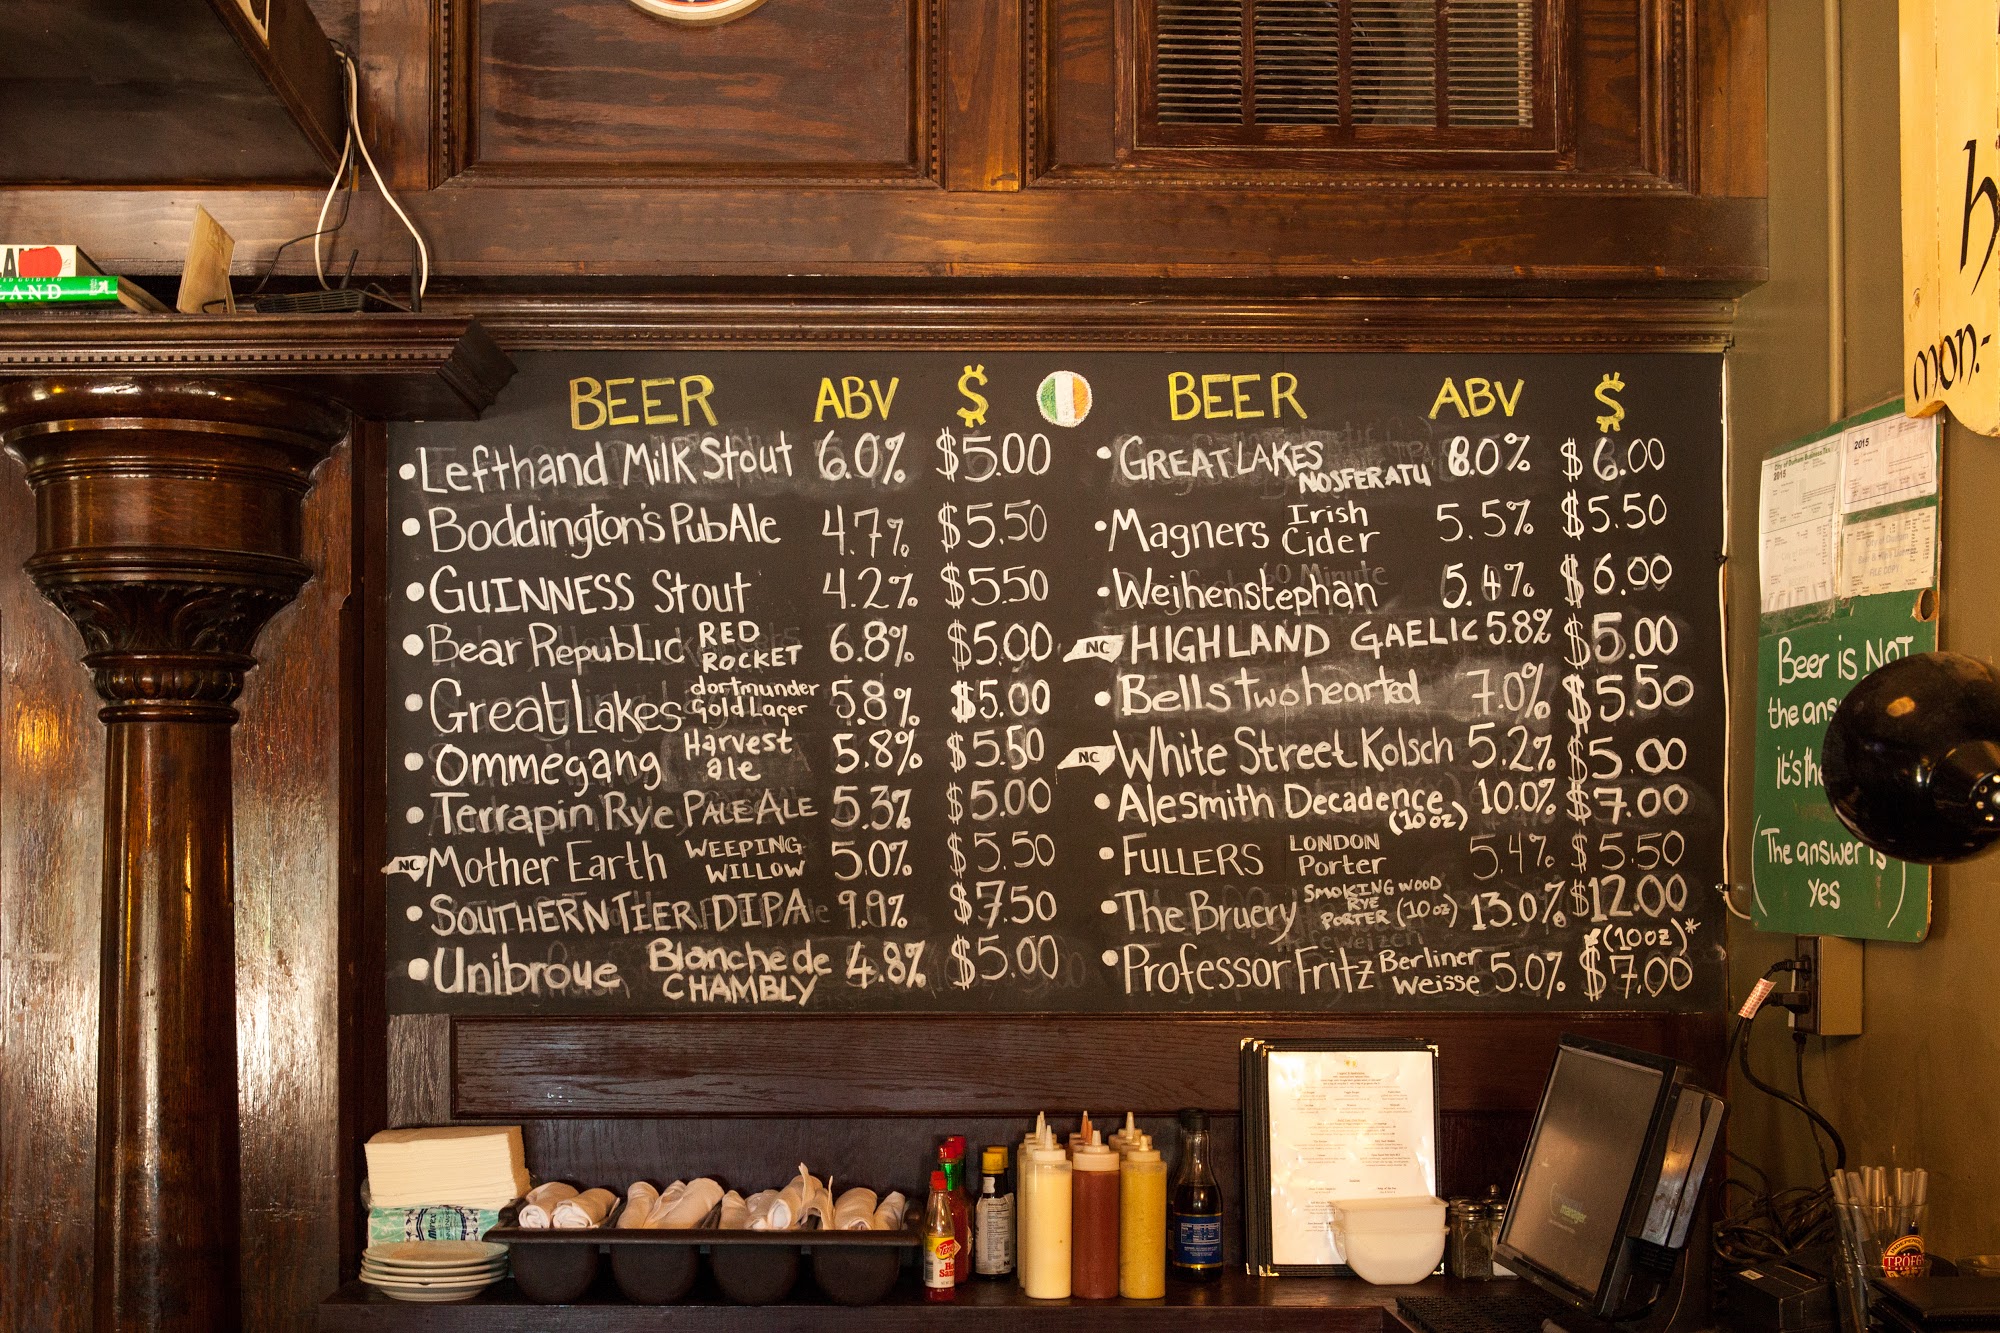 BEER ABV $
• Lefthand Milk Stout 6.0% $5.00
• Boddington's Pub Ale 4.7% $5.50
• GUINNESS Stout 4.2% $5.50
• Bear Republic RED ROCKET 6.8% $5.00
• Great Lakes dortmunder Gold Lager 5.8% $5.00
• Ommegang Harvest ale 5.8% $5.50
• Terrapin Rye PALE ALE 5.3% $5.00
NC Mother Earth WEEPING WILLOW 5.0% $5.50
• SOUTHERN TIER DIPA 9.9% $7.50
• Unibroue Blanche de CHAMBLY 4.8% $5.00
BEER ABV $
• GREAT LAKES NOSFERATU 8.0% $6.00
• Magners Irish Cider 5.5% $5.50
• Weihenstephan 5.4% $6.00
NC HIGHLAND GAELIC 5.8% $5.00
• Bells two hearted 7.0% $5.50
NC White Street Kolsch 5.2% $5.00
• Alesmith Decadence (10oz) 10.0% $7.00
• FULLERS LONDON Porter 5.4% $5.50
• The Bruery SMOKING WOOD RYE PORTER (10oz) 13.0% $12.00
• Professor Fritz Berliner Weisse 5.0% (10oz)* $7.00
City of Durham Business Tax
2015
2015
FILE COPY
Beer is NOT
the
it's the
(The answer is
yes)
mon.-
LAND
manager
TRÖEGS